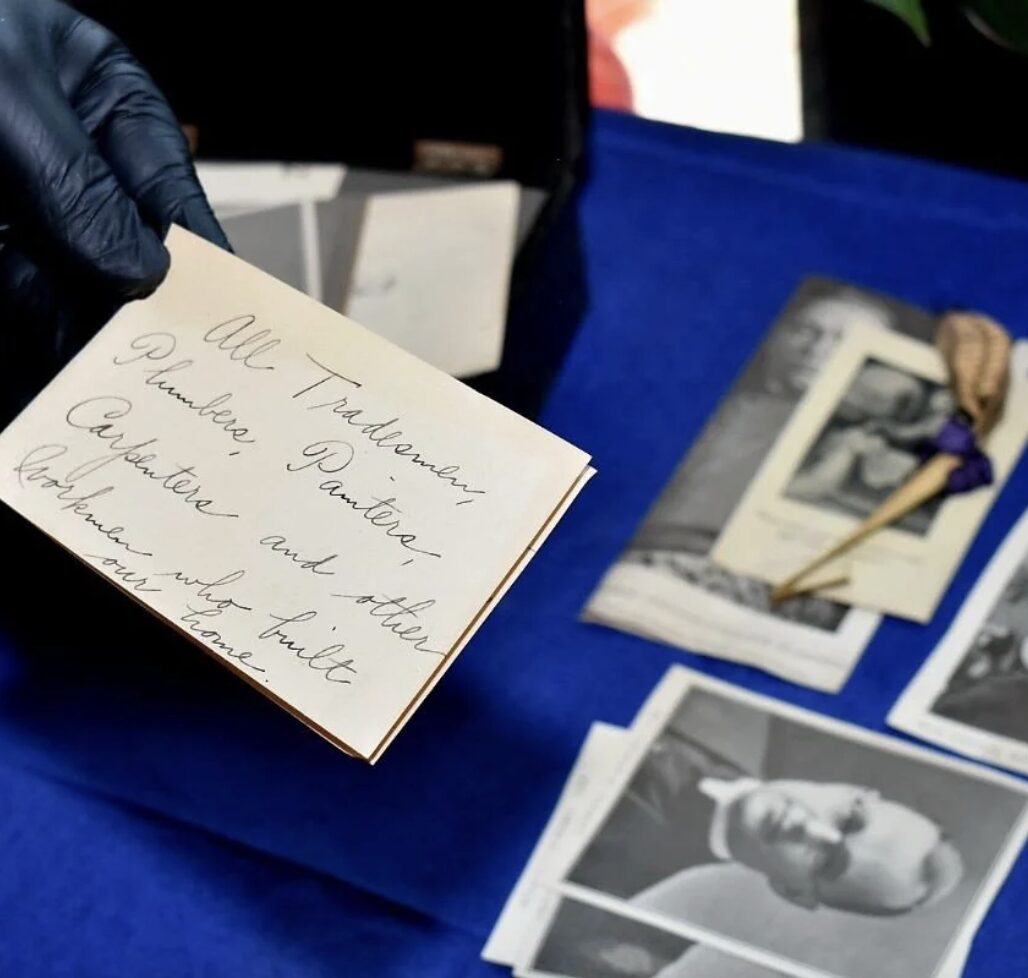 All Tradesmen,
Plumbers, Painters,
Carpenters and other
Workmen who built
our home.